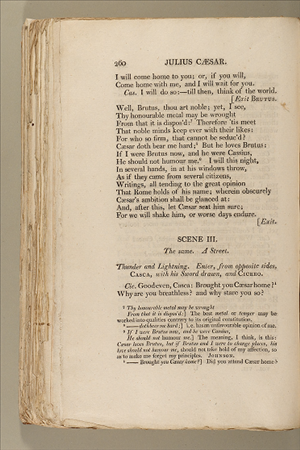 260 JULIUS CÆSAR.
I will come home to you; or, if you will,
Come home with me, and I will wait for you.
Cas. I will do so:—till then, think of the world.
[Exit BRUTUS.
Well, Brutus, thou art noble; yet, I see,
Thy honourable metal may be wrought
From that it is dispos'd:⁷ Therefore 'tis meet
That noble minds keep ever with their likes:
For who so firm, that cannot be seduc'd?
Cæsar doth bear me hard;⁸ But he loves Brutus:
If I were Brutus now, and he were Cassius,
He should not humour me.⁹ I will this night,
In several hands, in at his windows throw,
As if they came from several citizens,
Writings, all tending to the great opinion
That Rome holds of his name; wherein obscurely
Cæsar's ambition shall be glanced at:
And, after this, let Cæsar seat him sure;
For we will shake him, or worse days endure.
[Exit.
SCENE III.
The same. A Street.
Thunder and Lightning. Enter, from opposite sides,
CASCA, with his Sword drawn, and CICERO.
Cic. Good even, Casca: Brought you Cæsar home?¹
Why are you breathless? and why stare you so?
⁷ Thy honourable metal may be wrought
From that it is dispos'd:] The best metal or temper may be
worked into qualities contrary to its original constitution.
⁸ —— doth bear me hard;] i. e. has an unfavourable opinion of me.
⁹ If I were Brutus now, and he were Cassius,
He should not humour me.] The meaning, I think, is this:
Cæsar loves Brutus, but if Brutus and I were to change places, his
love should not humour me, should not take hold of my affection, so
as to make me forget my principles. JOHNSON.
¹ —— Brought you Cæsar home?] Did you attend Cæsar home?